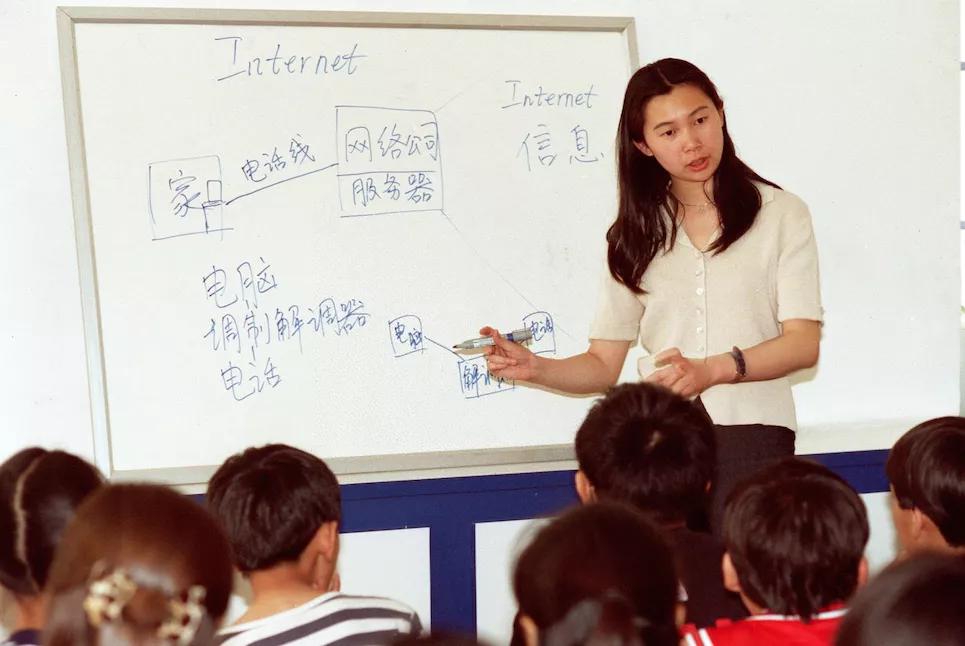 Internet
Internet
信息
网络公司
服务器
电话线
家
电脑
调制解调器
电话
电脑
电话